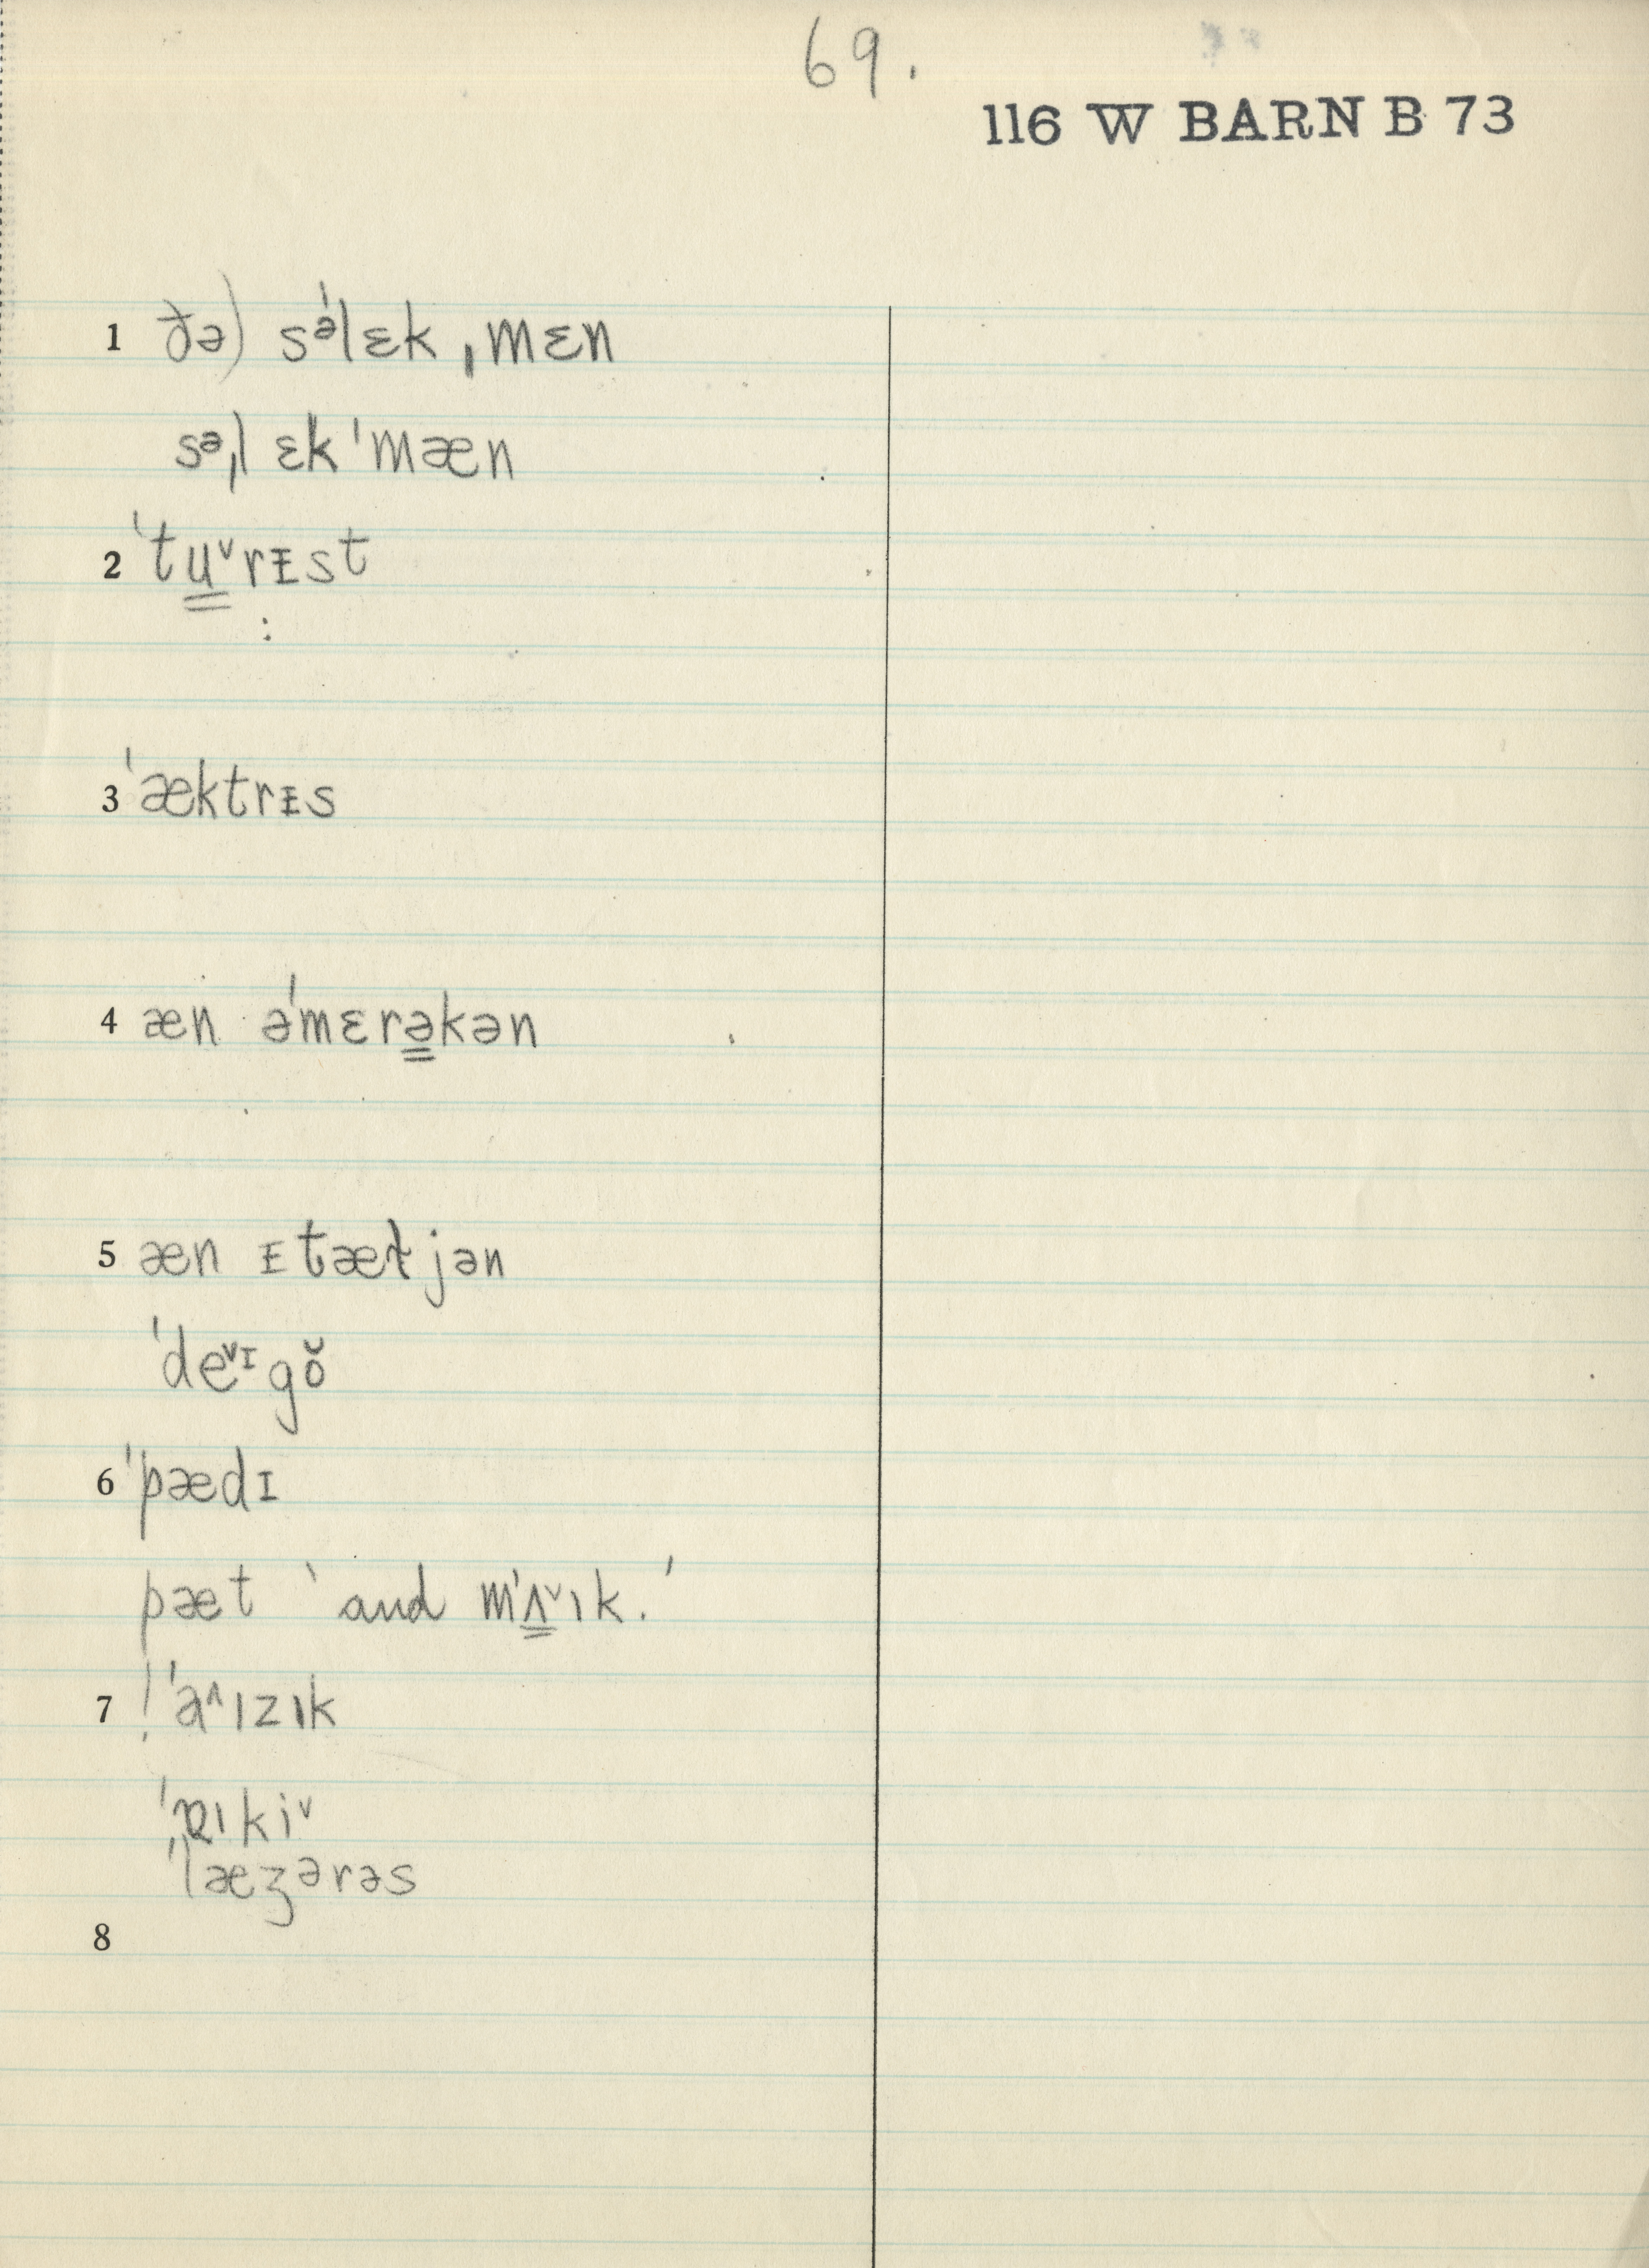 69.
116 W BARN B 73
1 ðə) sᵊˈlɛk ˌmɛn
sᵊˌlɛk ˈmæn
2 ˈtu̳ᵛrᵻst
:
3 ˈæktrᵻs
4 æn əˈmɛrə̳kən
5 æn ᵻtæɫjən
ˈdeᵛᶦgŏ
6 ˈpædɪ
pæt ‵and mˈʌ̳ᵛɪk.ʹ
7 ! ˈaᶺɪzɪk
ˈɪkiᵛ
ˈlæʒərəs
8